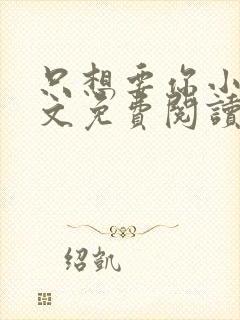 只想要你小
文免費閱讀
绍凯